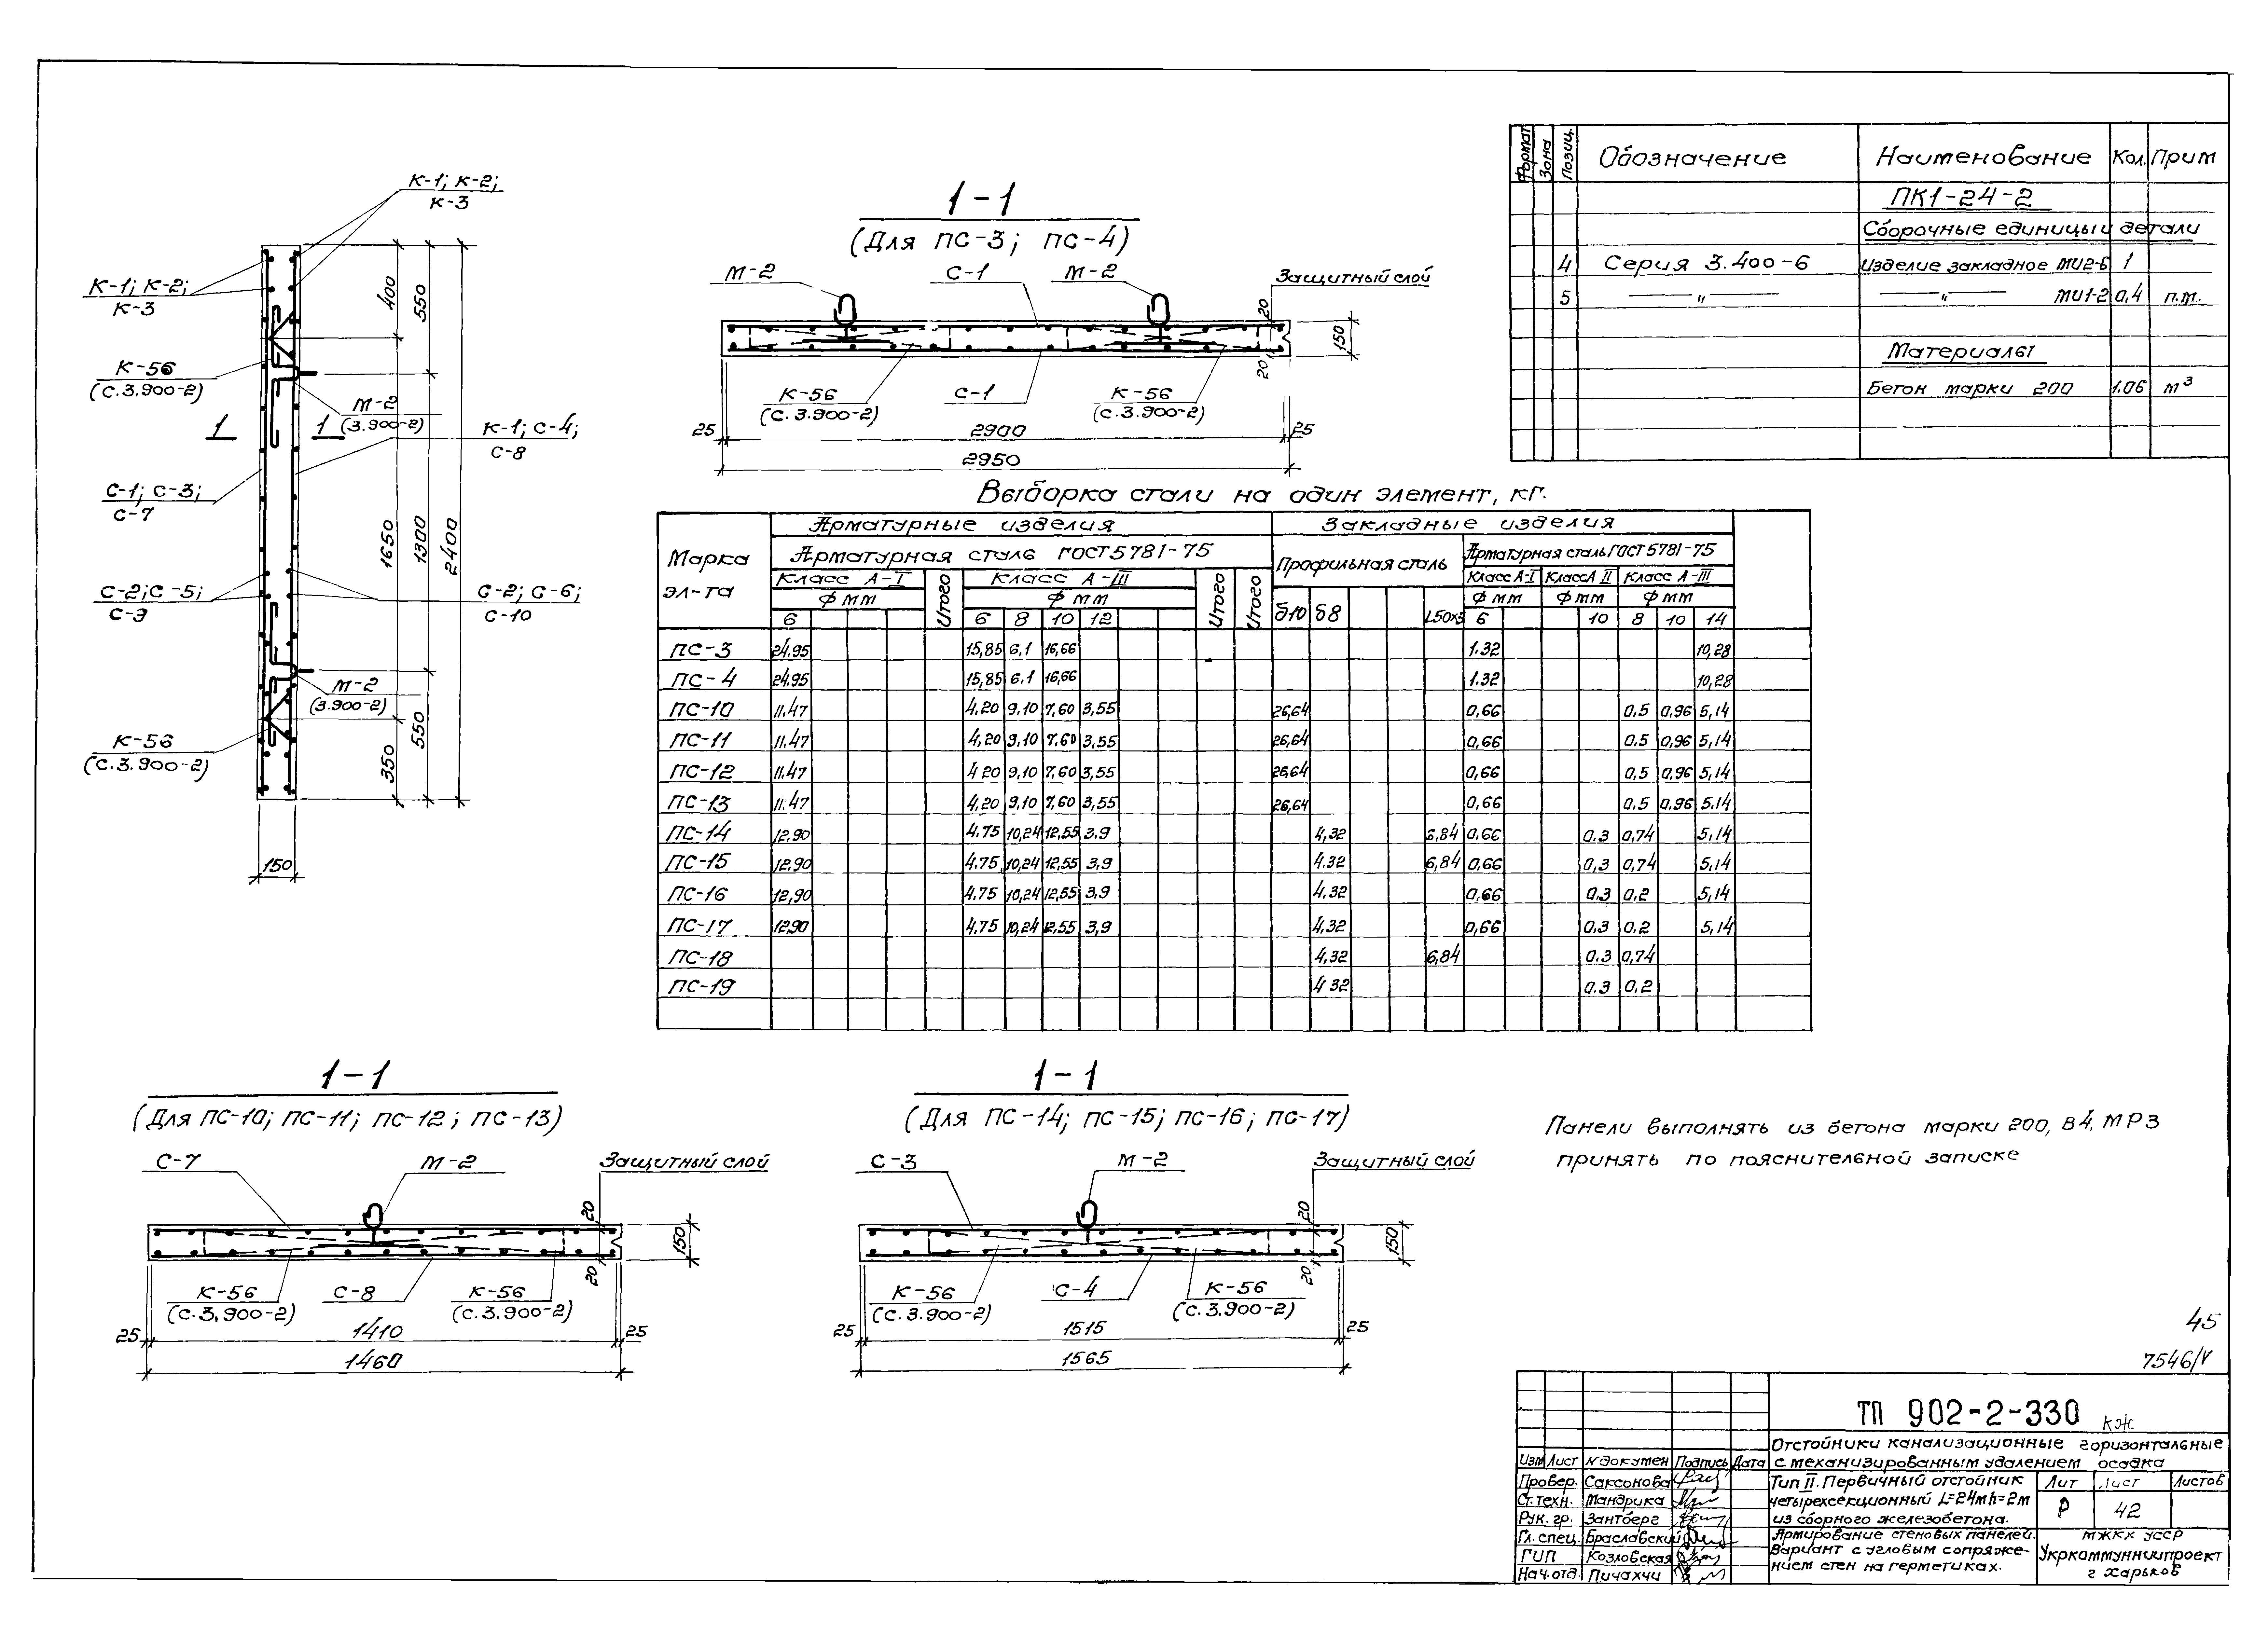 К-1; К-2;
К-3
К-1; К-2;
К-3
К-56
(С.3.900-2)
М-2
(3.900-2)
1 1
К-1; С-4;
С-8
С-1; С-3;
С-7
С-2; С-5;
С-9
С-2; С-6;
С-10
М-2
(3.900-2)
К-56
(С.3.900-2)
400
550
1650
1300
2400
350
550
150
1-1
(Для ПС-3; ПС-4)
М-2 С-1 М-2 Защитный слой
20
150
20
К-56 С-1 К-56
(С.3.900-2) (С.3.900-2)
25 2900 25
2950
Формат Зона Позиц. Обозначение Наименование Кол. Прим
ПК1-24-2
Сборочные единицы и детали
4 Серия 3.400-6 Изделие закладное МИ2-6 1
5 —"— —"— МИ1-2 0,4 п.м.
Материалы
Бетон марки 200 1.06 м³
Выборка стали на один элемент, кг.
Марка эл-та Арматурные изделия Закладные изделия
Арматурная сталь ГОСТ 5781-75 Профильная сталь Арматурная сталь ГОСТ 5781-75
Класс А-I Итого Класс А-III Итого Итого Класс А-I Класс А II Класс А-III
Ф мм Ф мм Ф мм Ф мм Ф мм
6 6 8 10 12 δ10 δ8 L50x5 6 10 8 10 14
ПС-3 24.95 15,85 6,1 16,66 1.32 10,28
ПС-4 24.95 15,85 6,1 16,66 1.32 10,28
ПС-10 11.47 4,20 9,10 7,60 3,55 26,64 0,66 0,5 0,96 5,14
ПС-11 11.47 4,20 9,10 7,60 3,55 26,64 0,66 0.5 0,96 5,14
ПС-12 11.47 4 20 9,10 7,60 3,55 26,64 0,66 0,5 0,96 5,14
ПС-13 11.47 4,20 9,10 7,60 3,55 26,64 0,66 0,5 0,96 5.14
ПС-14 12,90 4.75 10,24 12,55 3.9 4,32 6,84 0,66 0.3 0,74 5,14
ПС-15 12,90 4.75 10,24 12,55 3,9 4.32 6,84 0,66 0,3 0,74 5,14
ПС-16 12,90 4.75 10,24 12,55 3,9 4.32 0,66 0.3 0.2 5,14
ПС-17 12,90 4.75 10,24 12.55 3,9 4.32 0,66 0.3 0.2 5,14
ПС-18 4,32 6,84 0.3 0,74
ПС-19 4 32 0.3 0.2
1-1
(Для ПС-10; ПС-11; ПС-12; ПС-13)
С-7 М-2 Защитный слой
20
150
20
К-56 С-8 К-56
(С.3.900-2) (С.3.900-2)
25 1410 25
1460
1-1
(Для ПС-14; ПС-15; ПС-16; ПС-17)
С-3 М-2 Защитный слой
20
150
20
К-56 С-4 К-56
(С.3.900-2) (С.3.900-2)
25 1515 25
1565
Панели выполнять из бетона марки 200, В4. МРЗ
принять по пояснительной записке
45
7546/V
ТП 902-2-330 КЖ
Отстойники канализационные горизонтальные
с механизированным удалением осадка
Изм Лист N докумен Подпись Дата
Провер. Саксонова
Ст. техн. Мандрика
Рук. гр. Зантберг
Гл. спец. Браславский
ГИП Козловская
Нач. отд. Пичахчи
Тип II. Первичный отстойник
четырехсекционный L=24м h=2м
из сборного железобетона.
Армирование стеновых панелей.
Вариант с угловым сопряже-
нием стен на герметиках.
Лит Лист Листов
Р 42
МЖКХ УССР
Укркоммунниипроект
г Харьков